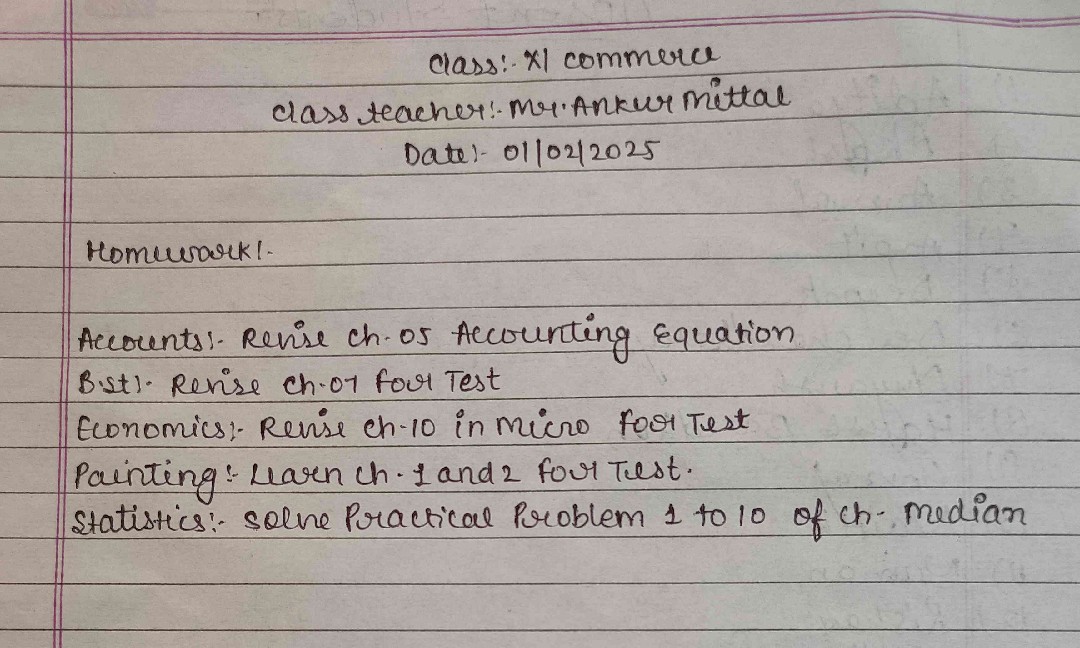 Class:- XI Commerce
Class teacher:- Mr. Ankur Mittal
Date:- 01/02/2025
Homework:-
Accounts:- Revise Ch-05 Accounting Equation
B.st:- Revise Ch-07 for Test
Economics:- Revise Ch-10 in Micro for Test
Painting:- Learn Ch-1 and 2 for Test.
Statistics:- Solve Practical Problem 1 to 10 of Ch- Median